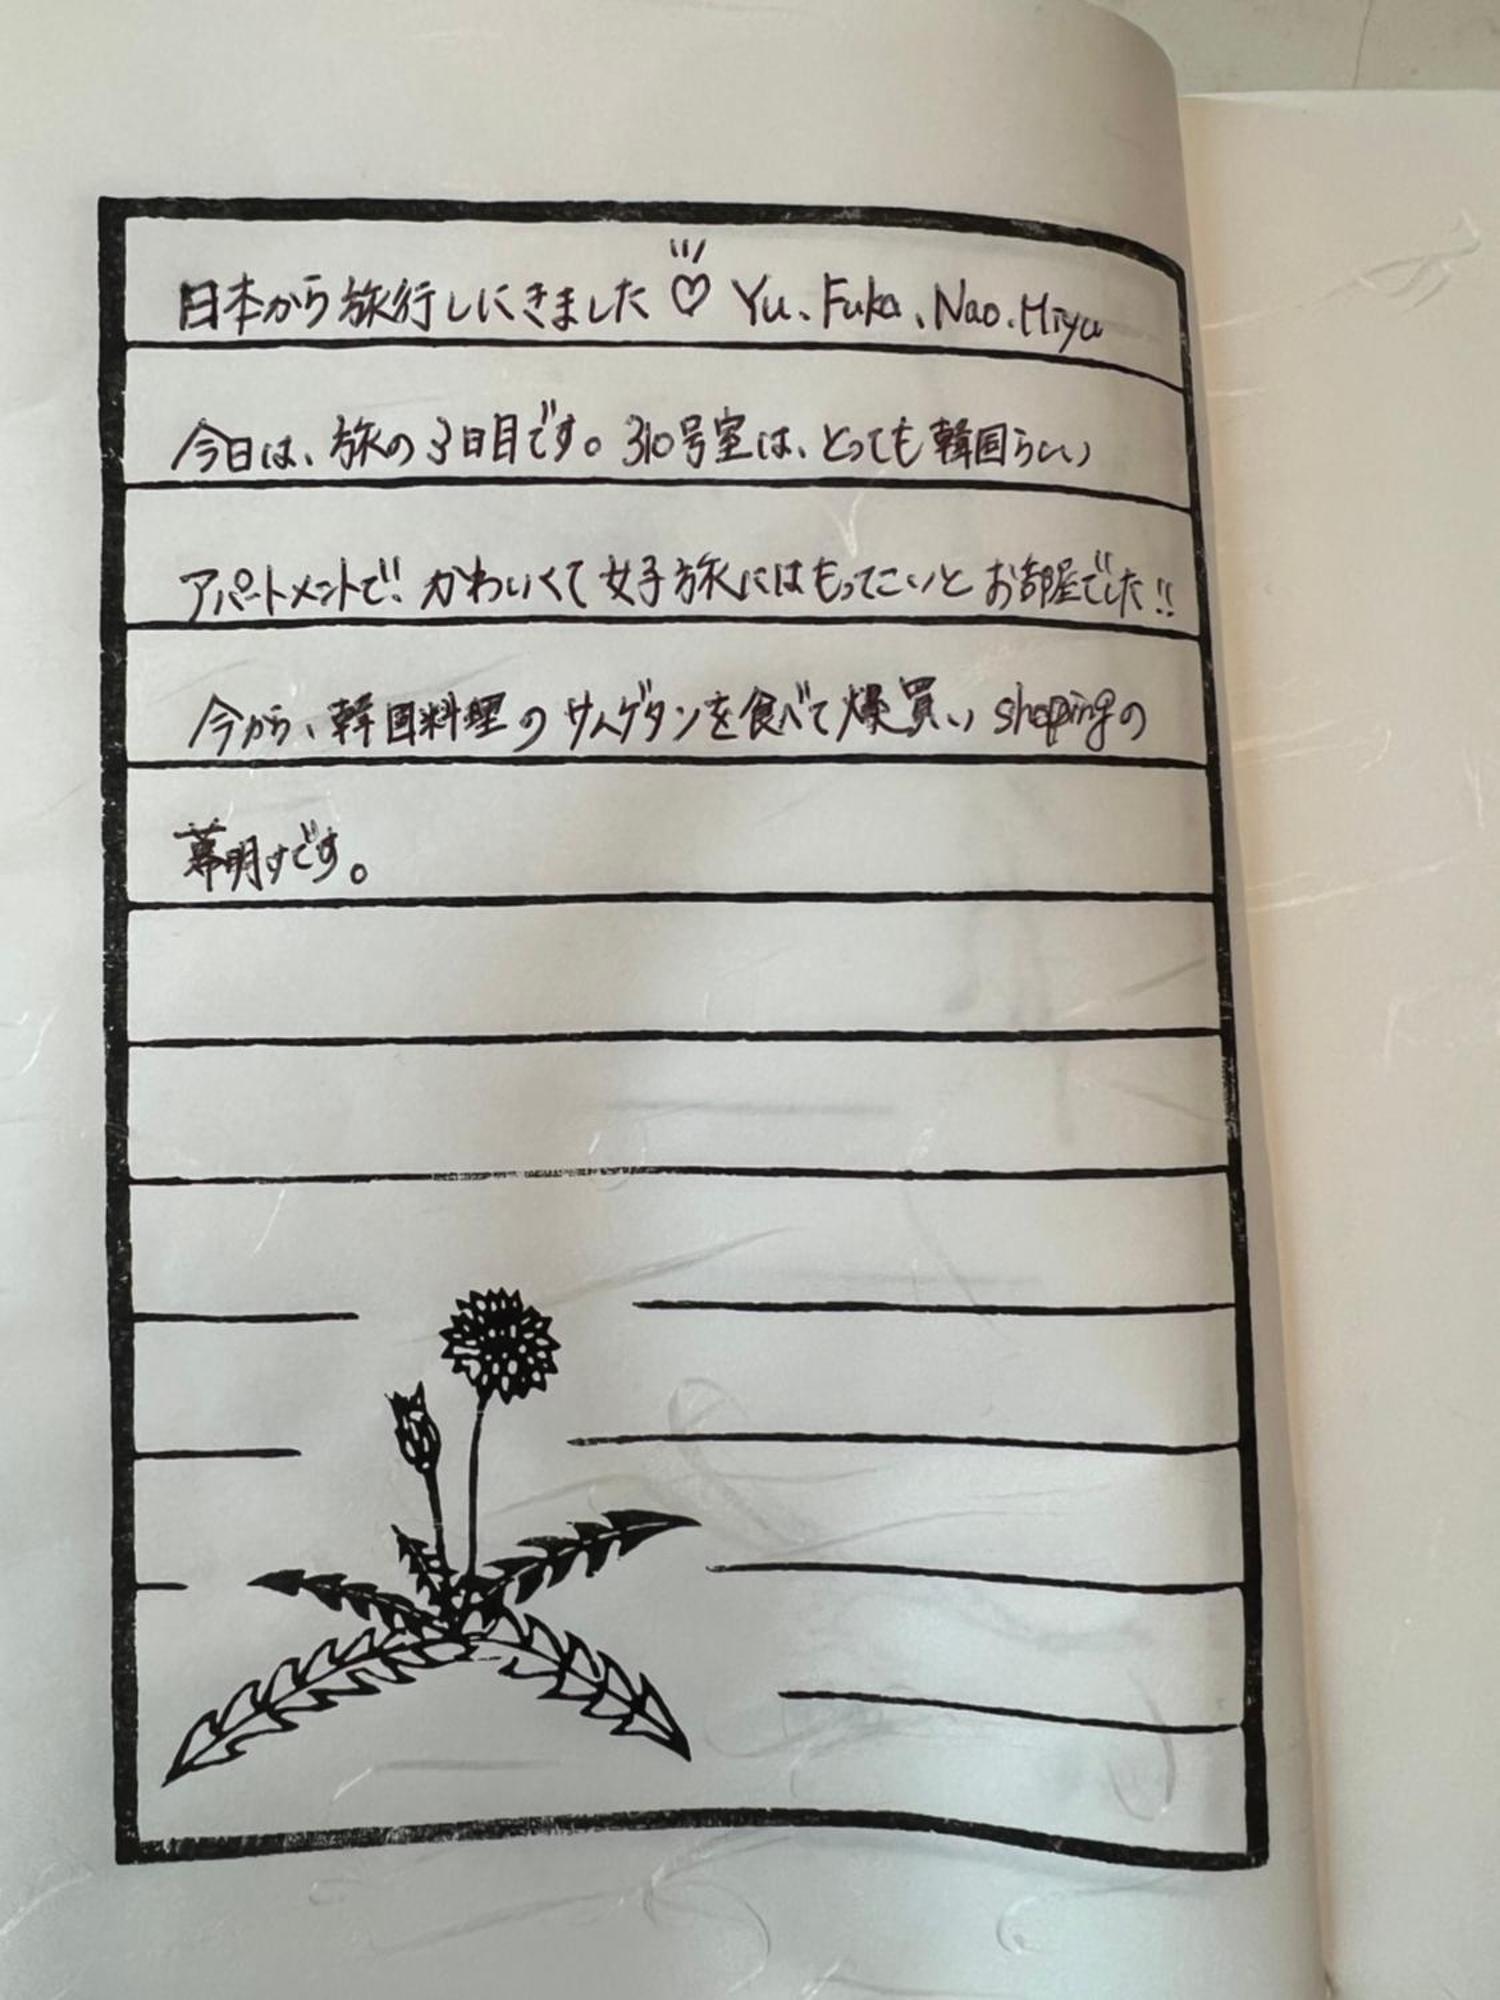 日本から旅行しにきました♡ Yu、Fuka、Nao、Miyu
今日は、旅の3日目です。310号室は、とっても韓国らしい
アパートメントで!! かわいくて女子旅にはもってこいとお部屋でした!!
今から、韓国料理のサムゲタンを食べて爆買い shoppingの
幕明けです。